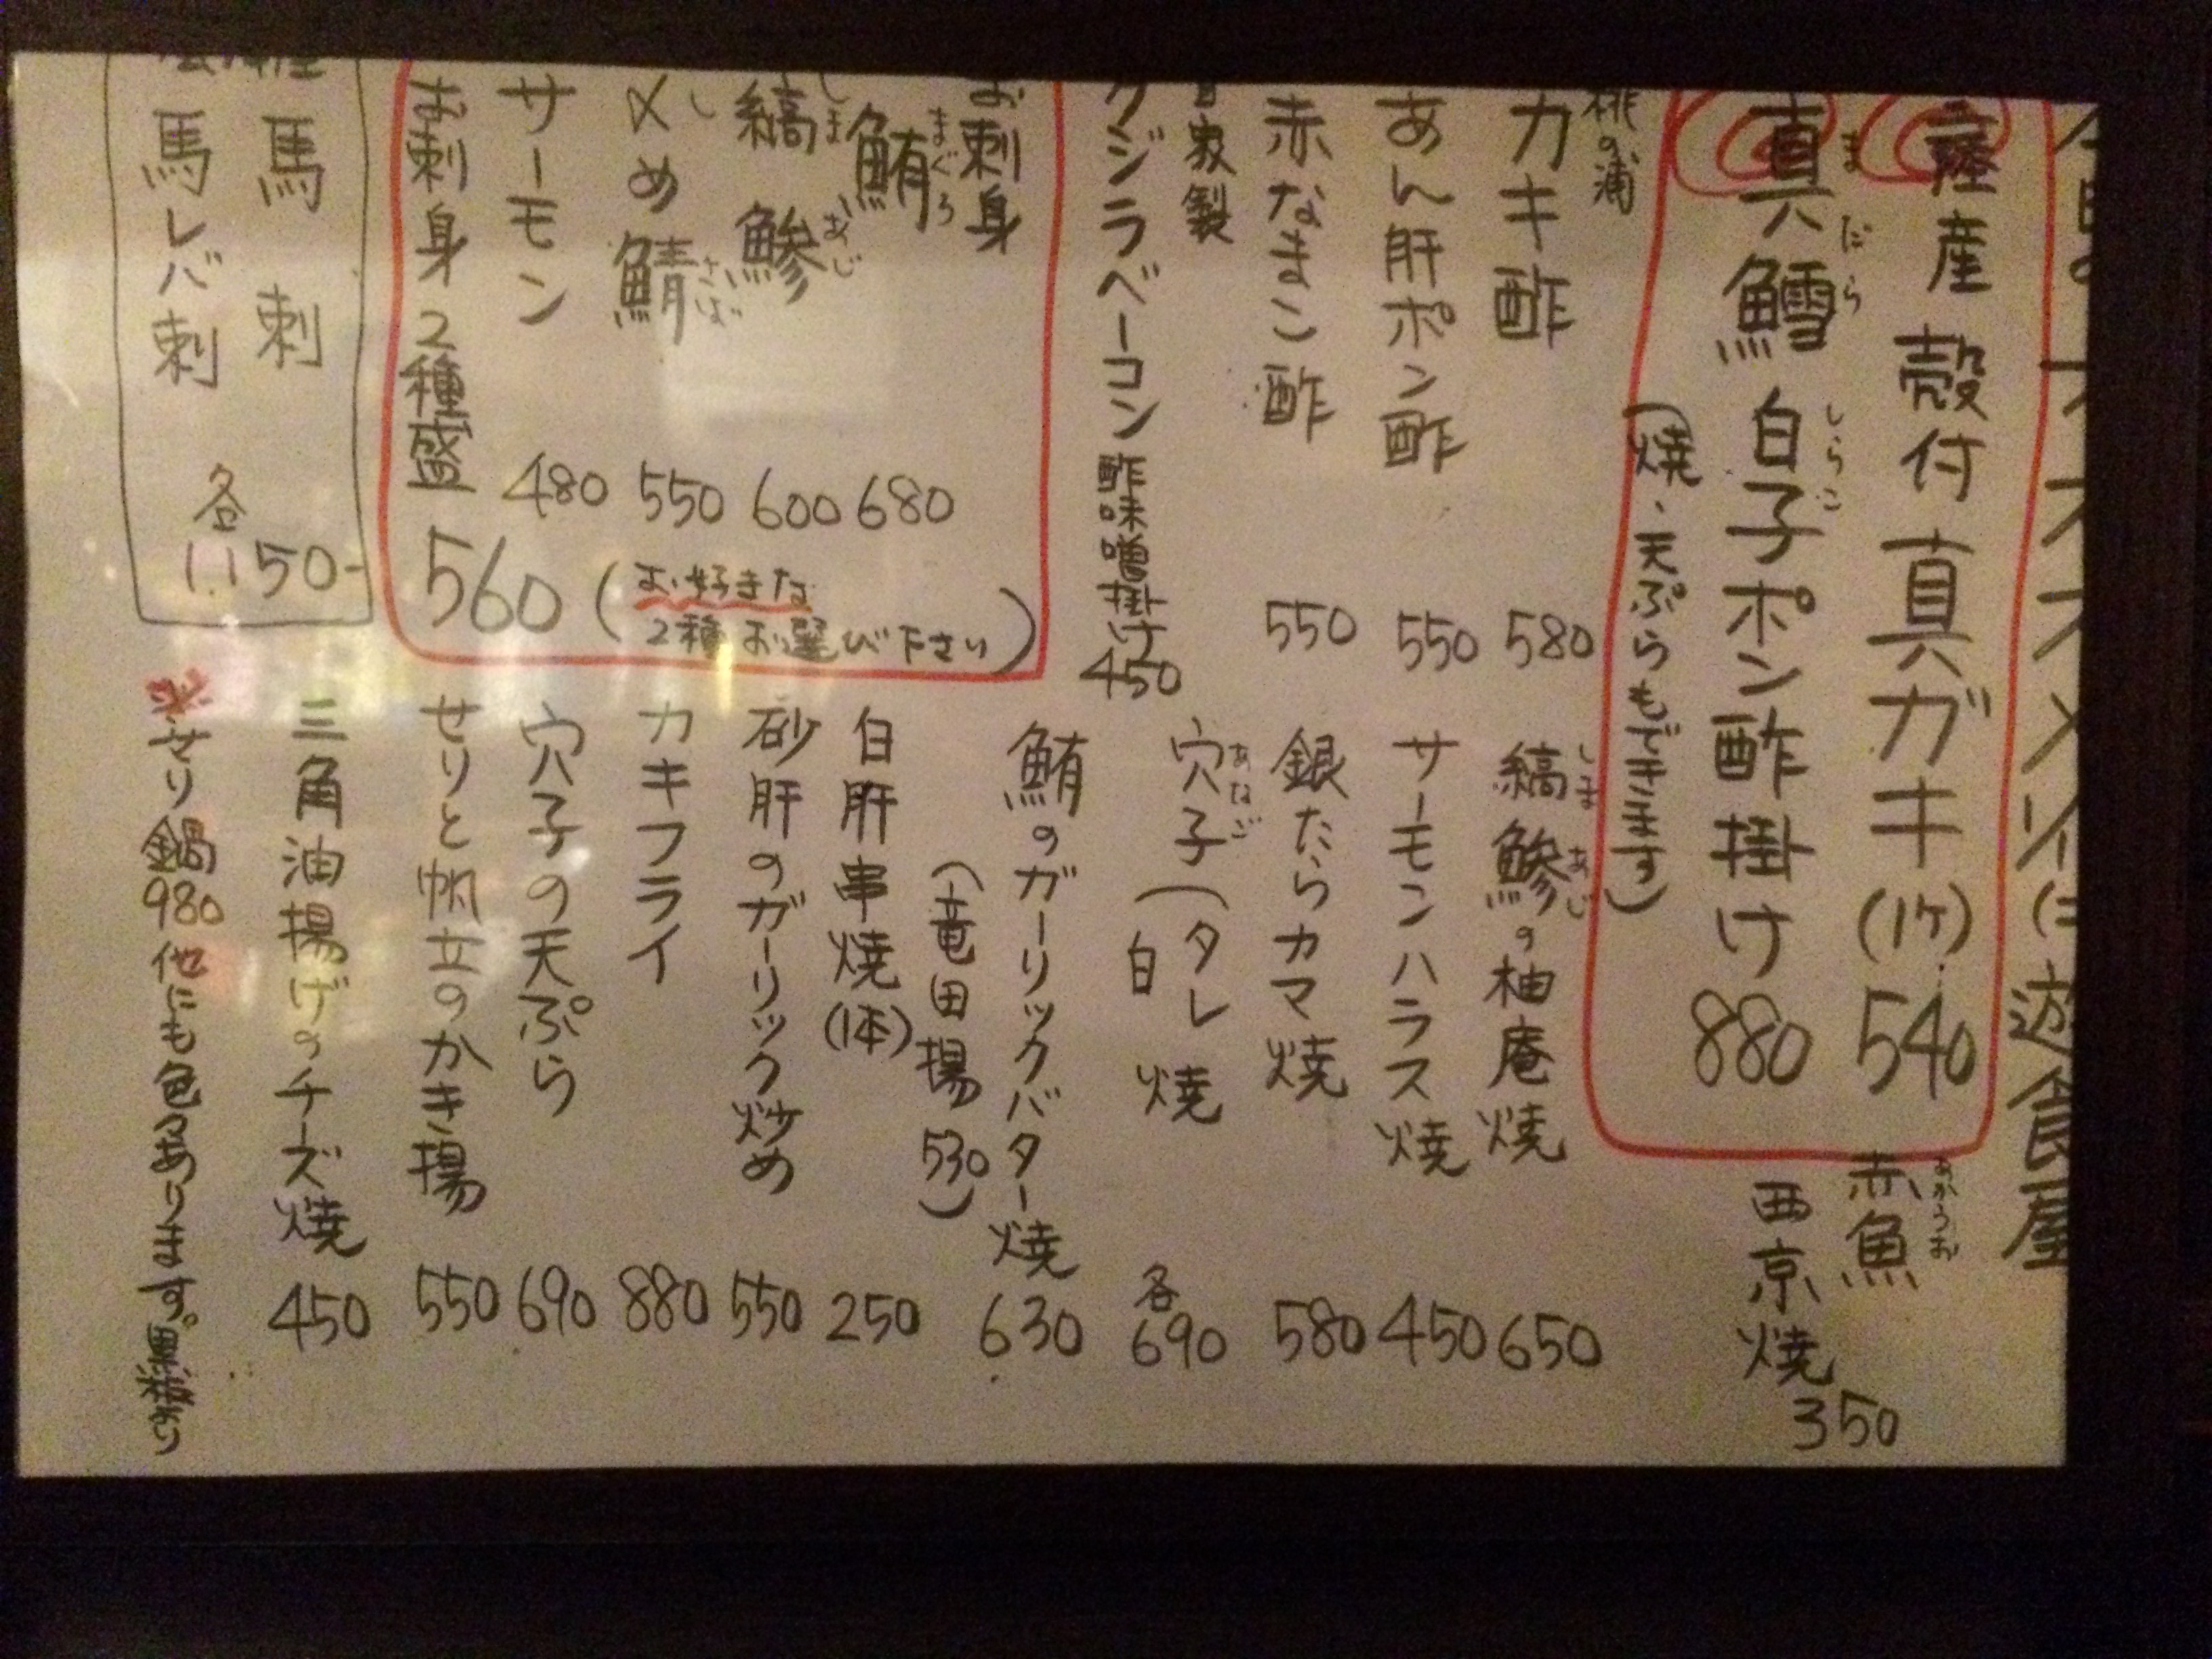 今日のオススメメニュー 遊食屋
三陸産 殻付 真ガキ(1ケ) 540
真鱈 白子ポン酢掛け 880
まだら しらこ
(焼・天ぷらもできます)
赤魚
あかうお
西京焼
350
桃の浦
カキ酢 580
あん肝ポン酢 550
赤なまこ酢 550
自家製
クジラベーコン 酢味噌掛け 450
お刺身
鮪 680
まぐろ
縞鯵 600
しまあじ
〆め鯖 550
しさば
サーモン 480
お刺身2種盛 560
(お好きな
2種お選び下さい)
馬刺
馬レバ刺
各
1150-
縞鯵の柚庵焼 650
しまあじ
サーモンハラス焼 450
銀たらカマ焼 580
穴子(タレ
あなご
白
焼
各
690
鮪のガーリックバター焼 630
(竜田揚 530)
白肝串焼(1本) 250
砂肝のガーリック炒め 550
カキフライ 880
穴子の天ぷら 690
せりと帆立のかき揚 550
三角油揚げのチーズ焼 450
※せり鍋980他にも色々あります。黒板より